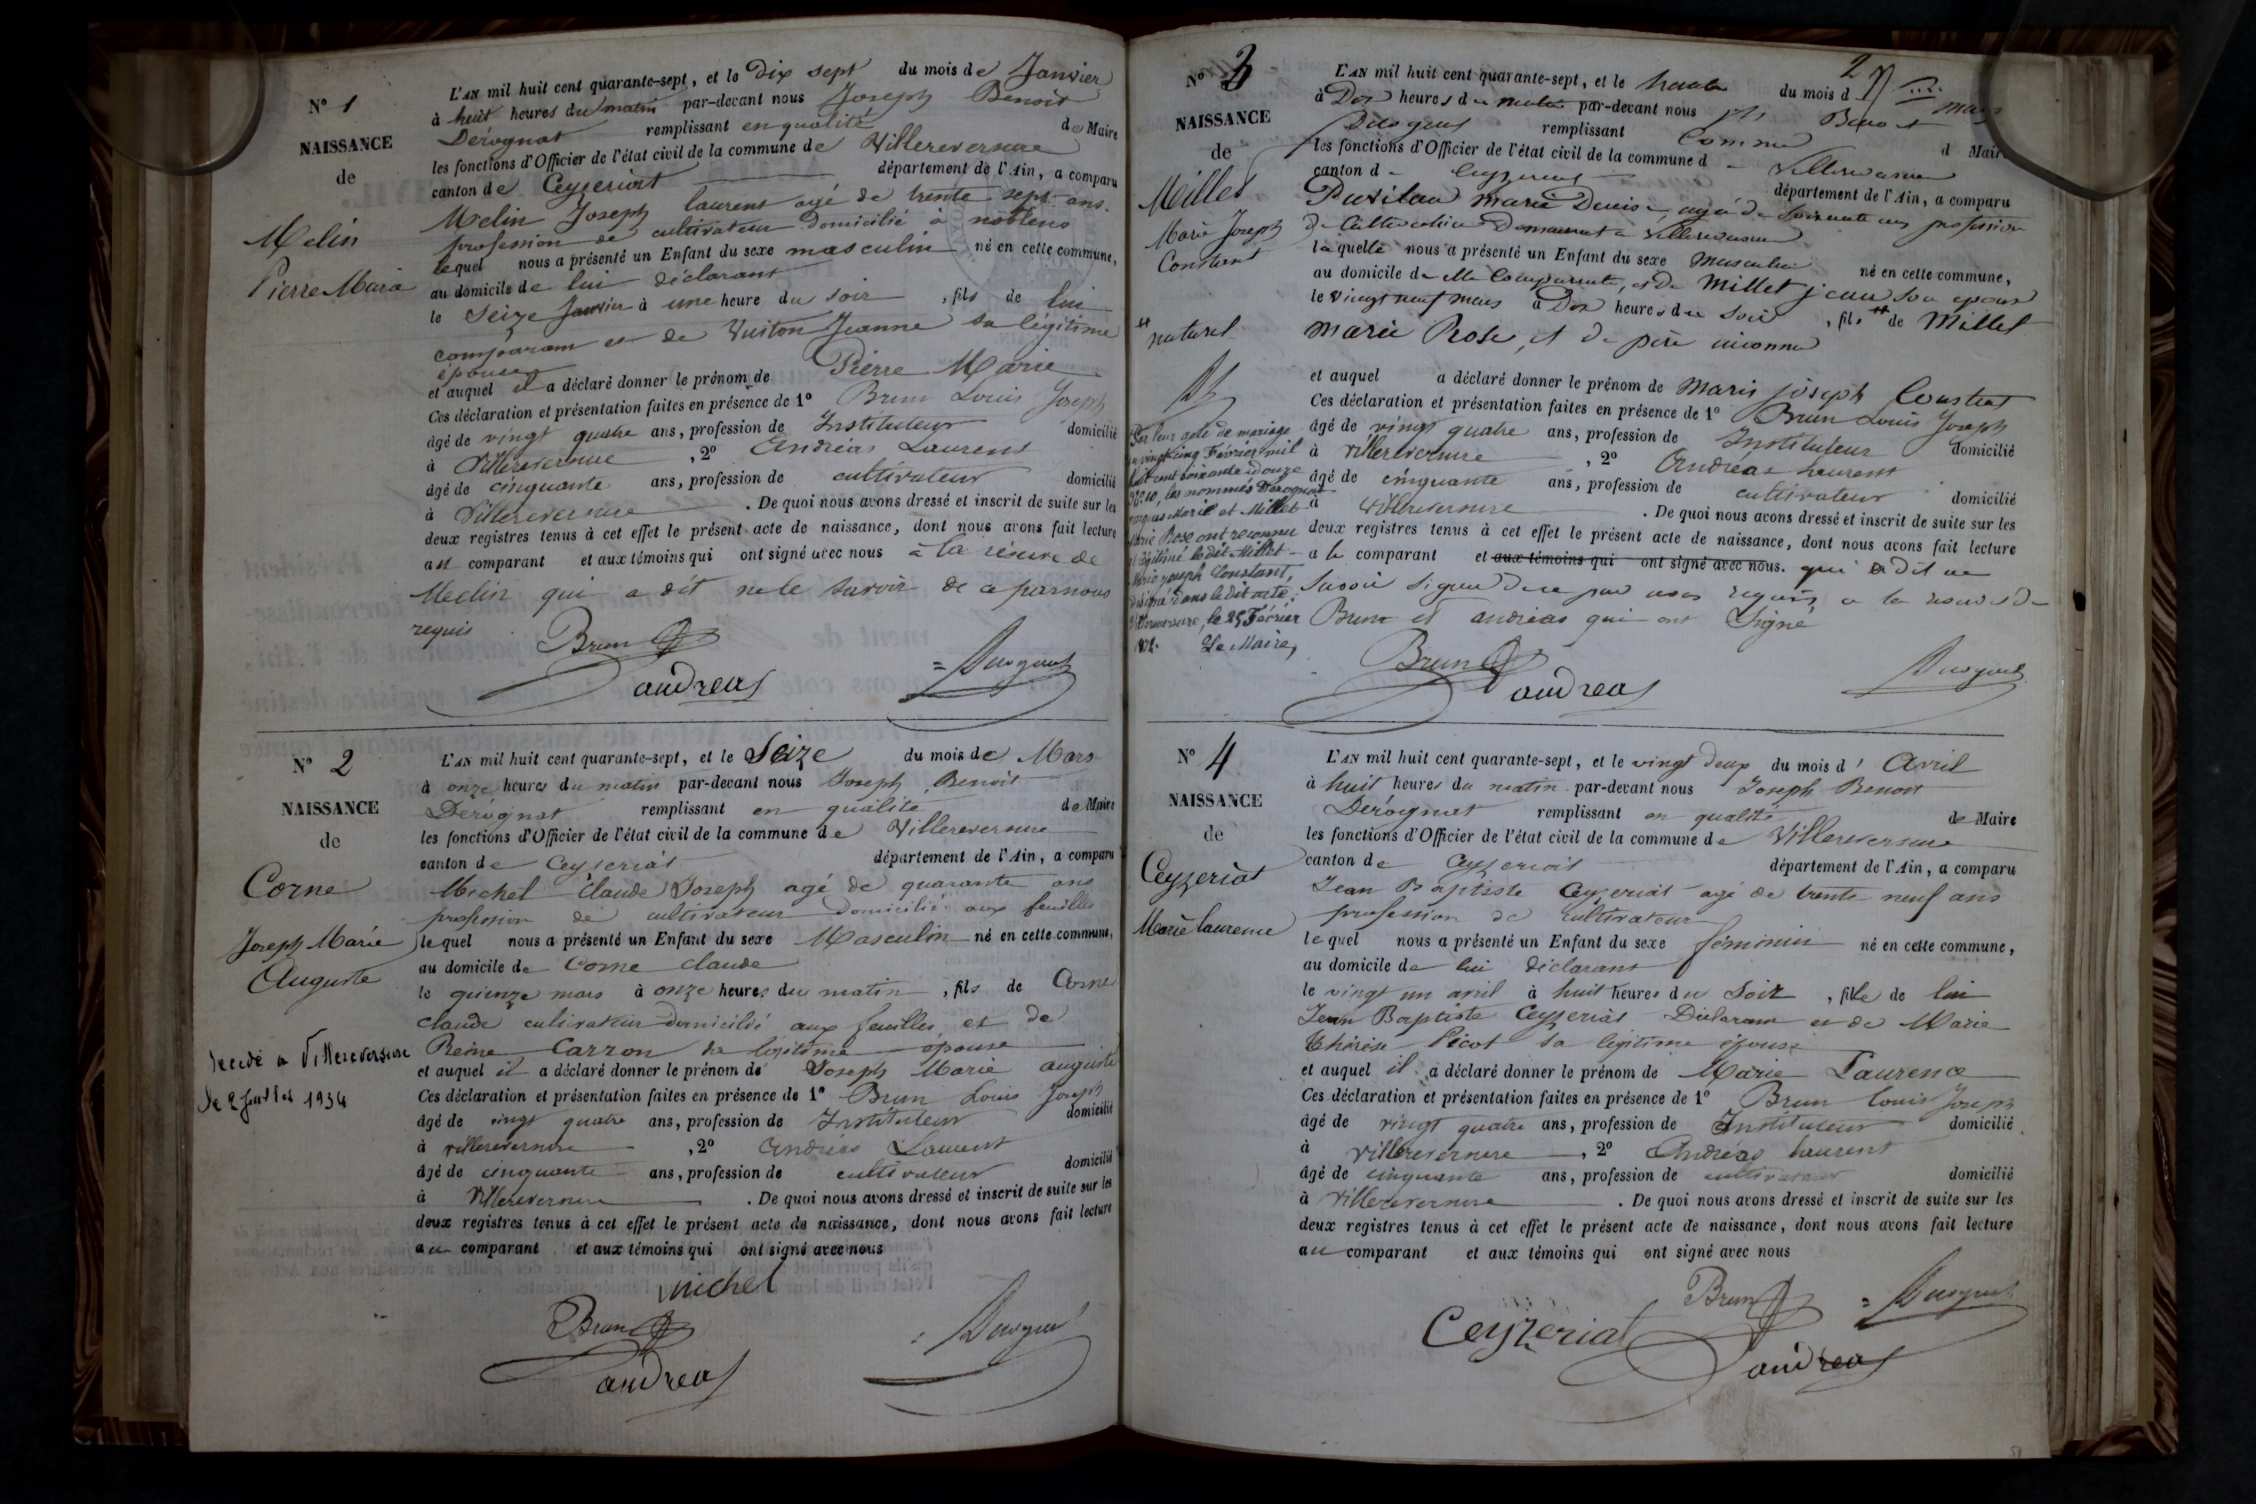 N° 1
NAISSANCE
de
Melin
Pierre Marie
L'AN mil huit cent quarante-sept, et le Dix sept du mois de Janvier
à huit heures du matin par-devant nous Joseph Benoit
Derognat remplissant en qualité de Maire
les fonctions d'Officier de l'état civil de la commune de Villereversure
canton de Ceyzeriat département de l'Ain, a comparu
Melin Joseph laurent agé de trente sept ans
profession de cultivateur domicilié à noblens
lequel nous a présenté un Enfant du sexe masculin né en cette commune,
au domicile de lui déclarant
le Seize Janvier à une heure du soir, fils de lui
comparant et de Vuiton Jeanne sa légitime
épouse
et auquel il a déclaré donner le prénom de Pierre Marie
Ces déclaration et présentation faites en présence de 1° Brun Louis Joseph
âgé de vingt quatre ans, profession de Instituteur domicilié
à Villereversure, 2° Andréas Laurent
âgé de cinquante ans, profession de cultivateur domicilié
à Villereversure. De quoi nous avons dressé et inscrit de suite sur les
deux registres tenus à cet effet le présent acte de naissance, dont nous avons fait lecture
au comparant et aux témoins qui ont signé avec nous à la réserve de
Melin qui a dit ne le savoir de ce par nous
requis
Brun
andreas
N° 2
NAISSANCE
de
Corne
Joseph Marie
Auguste
Decédé à Villereversure
le 2 1934
L'AN mil huit cent quarante-sept, et le Seize du mois de Mars
à onze heures du matin par-devant nous Joseph Benoit
Dérognat remplissant en qualité de Maire
les fonctions d'Officier de l'état civil de la commune de Villereversure
canton de Ceyzeriat département de l'Ain, a comparu
Michel Claude Joseph agé de quarante ans
profession de cultivateur domicilié aux feuilles
lequel nous a présenté un Enfant du sexe Masculin né en cette commune,
au domicile de Corne claude
le quinze mars à onze heures du matin, fils de Corne
claude cultivateur domicilié aux feuilles et de
Reine Carron sa légitime epouse
et auquel il a déclaré donner le prénom de Joseph Marie auguste
Ces déclaration et présentation faites en présence de 1° Brun Louis Joseph
âgé de vingt quatre ans, profession de Instituteur domicilié
à villereversure, 2° Andréas Laurent
âgé de cinquante ans, profession de cultivateur domicilié
à Villereversure. De quoi nous avons dressé et inscrit de suite sur les
deux registres tenus à cet effet le présent acte de naissance, dont nous avons fait lecture
au comparant et aux témoins qui ont signé avec nous
michel
Brun
andreas
2
N° 3
NAISSANCE
de
Millet
Marie Joseph
Constant
naturel
Par leur acte de mariage
du vingt cinq Février mil
huit cent soixante douze
les nommés Derognat
Marie et Millet
Marie Rose ont reconnu
et légitimé le dit Millet
Marie joseph Constant,
désigné dans le dit acte.
Villereversure, le 25 Février
1872. Le Maire,
L'AN mil huit cent quarante-sept, et le trente du mois d mars
à Dix heures du matin par-devant nous Benoit
remplissant Comme d Maire
les fonctions d'Officier de l'état civil de la commune d Villereversure
canton d Ceyzeriat département de l'Ain, a comparu
marie Denise, agée de soixante ans profession
de Cultivatrice Demeurant à Villereversure
laquelle nous a présenté un Enfant du sexe masculin né en cette commune,
au domicile de elle Comparante, et de Millet jean son epoux
le vingt neuf mars à Dix heures du soir, fils de Millet
Marie Rose, et de père inconnu
et auquel a déclaré donner le prénom de Marie joseph Constant
Ces déclaration et présentation faites en présence de 1° Brun Louis Joseph
âgé de vingt quatre ans, profession de Instituteur domicilié
à villereversure, 2° Andréas Laurent
âgé de cinquante ans, profession de cultivateur domicilié
à Villereversure. De quoi nous avons dressé et inscrit de suite sur les
deux registres tenus à cet effet le présent acte de naissance, dont nous avons fait lecture
a la comparant et aux témoins qui ont signé avec nous. qui a dit ne
savoir signer de ce par nous requis a la reserve de
Brun et andréas qui ont Signé
Brun
andreas
N° 4
NAISSANCE
de
Ceyzeriat
Marie laurence
L'AN mil huit cent quarante-sept, et le vingt deux du mois d'Avril
à huit heures du matin par-devant nous Joseph Benoit
Dérognat remplissant en qualité de Maire
les fonctions d'Officier de l'état civil de la commune de Villereversure
canton de Ceyzeriat département de l'Ain, a comparu
Jean Baptiste Ceyzeriat agé de trente neuf ans
profession de Cultivateur
lequel nous a présenté un Enfant du sexe féminin né en cette commune,
au domicile de lui déclarant
le vingt un avril à huit heures du Soir, fille de lui
Jean Baptiste Ceyzeriat Déclarant et de Marie
Thérèse Picot sa légitime épouse
et auquel il a déclaré donner le prénom de Marie Laurence
Ces déclaration et présentation faites en présence de 1° Brun Louis Joseph
âgé de vingt quatre ans, profession de Instituteur domicilié
à Villereversure, 2° Andréas Laurent
âgé de cinquante ans, profession de cultivateur domicilié
à Villereversure. De quoi nous avons dressé et inscrit de suite sur les
deux registres tenus à cet effet le présent acte de naissance, dont nous avons fait lecture
au comparant et aux témoins qui ont signé avec nous
Brun
Ceyzeriat
andreas